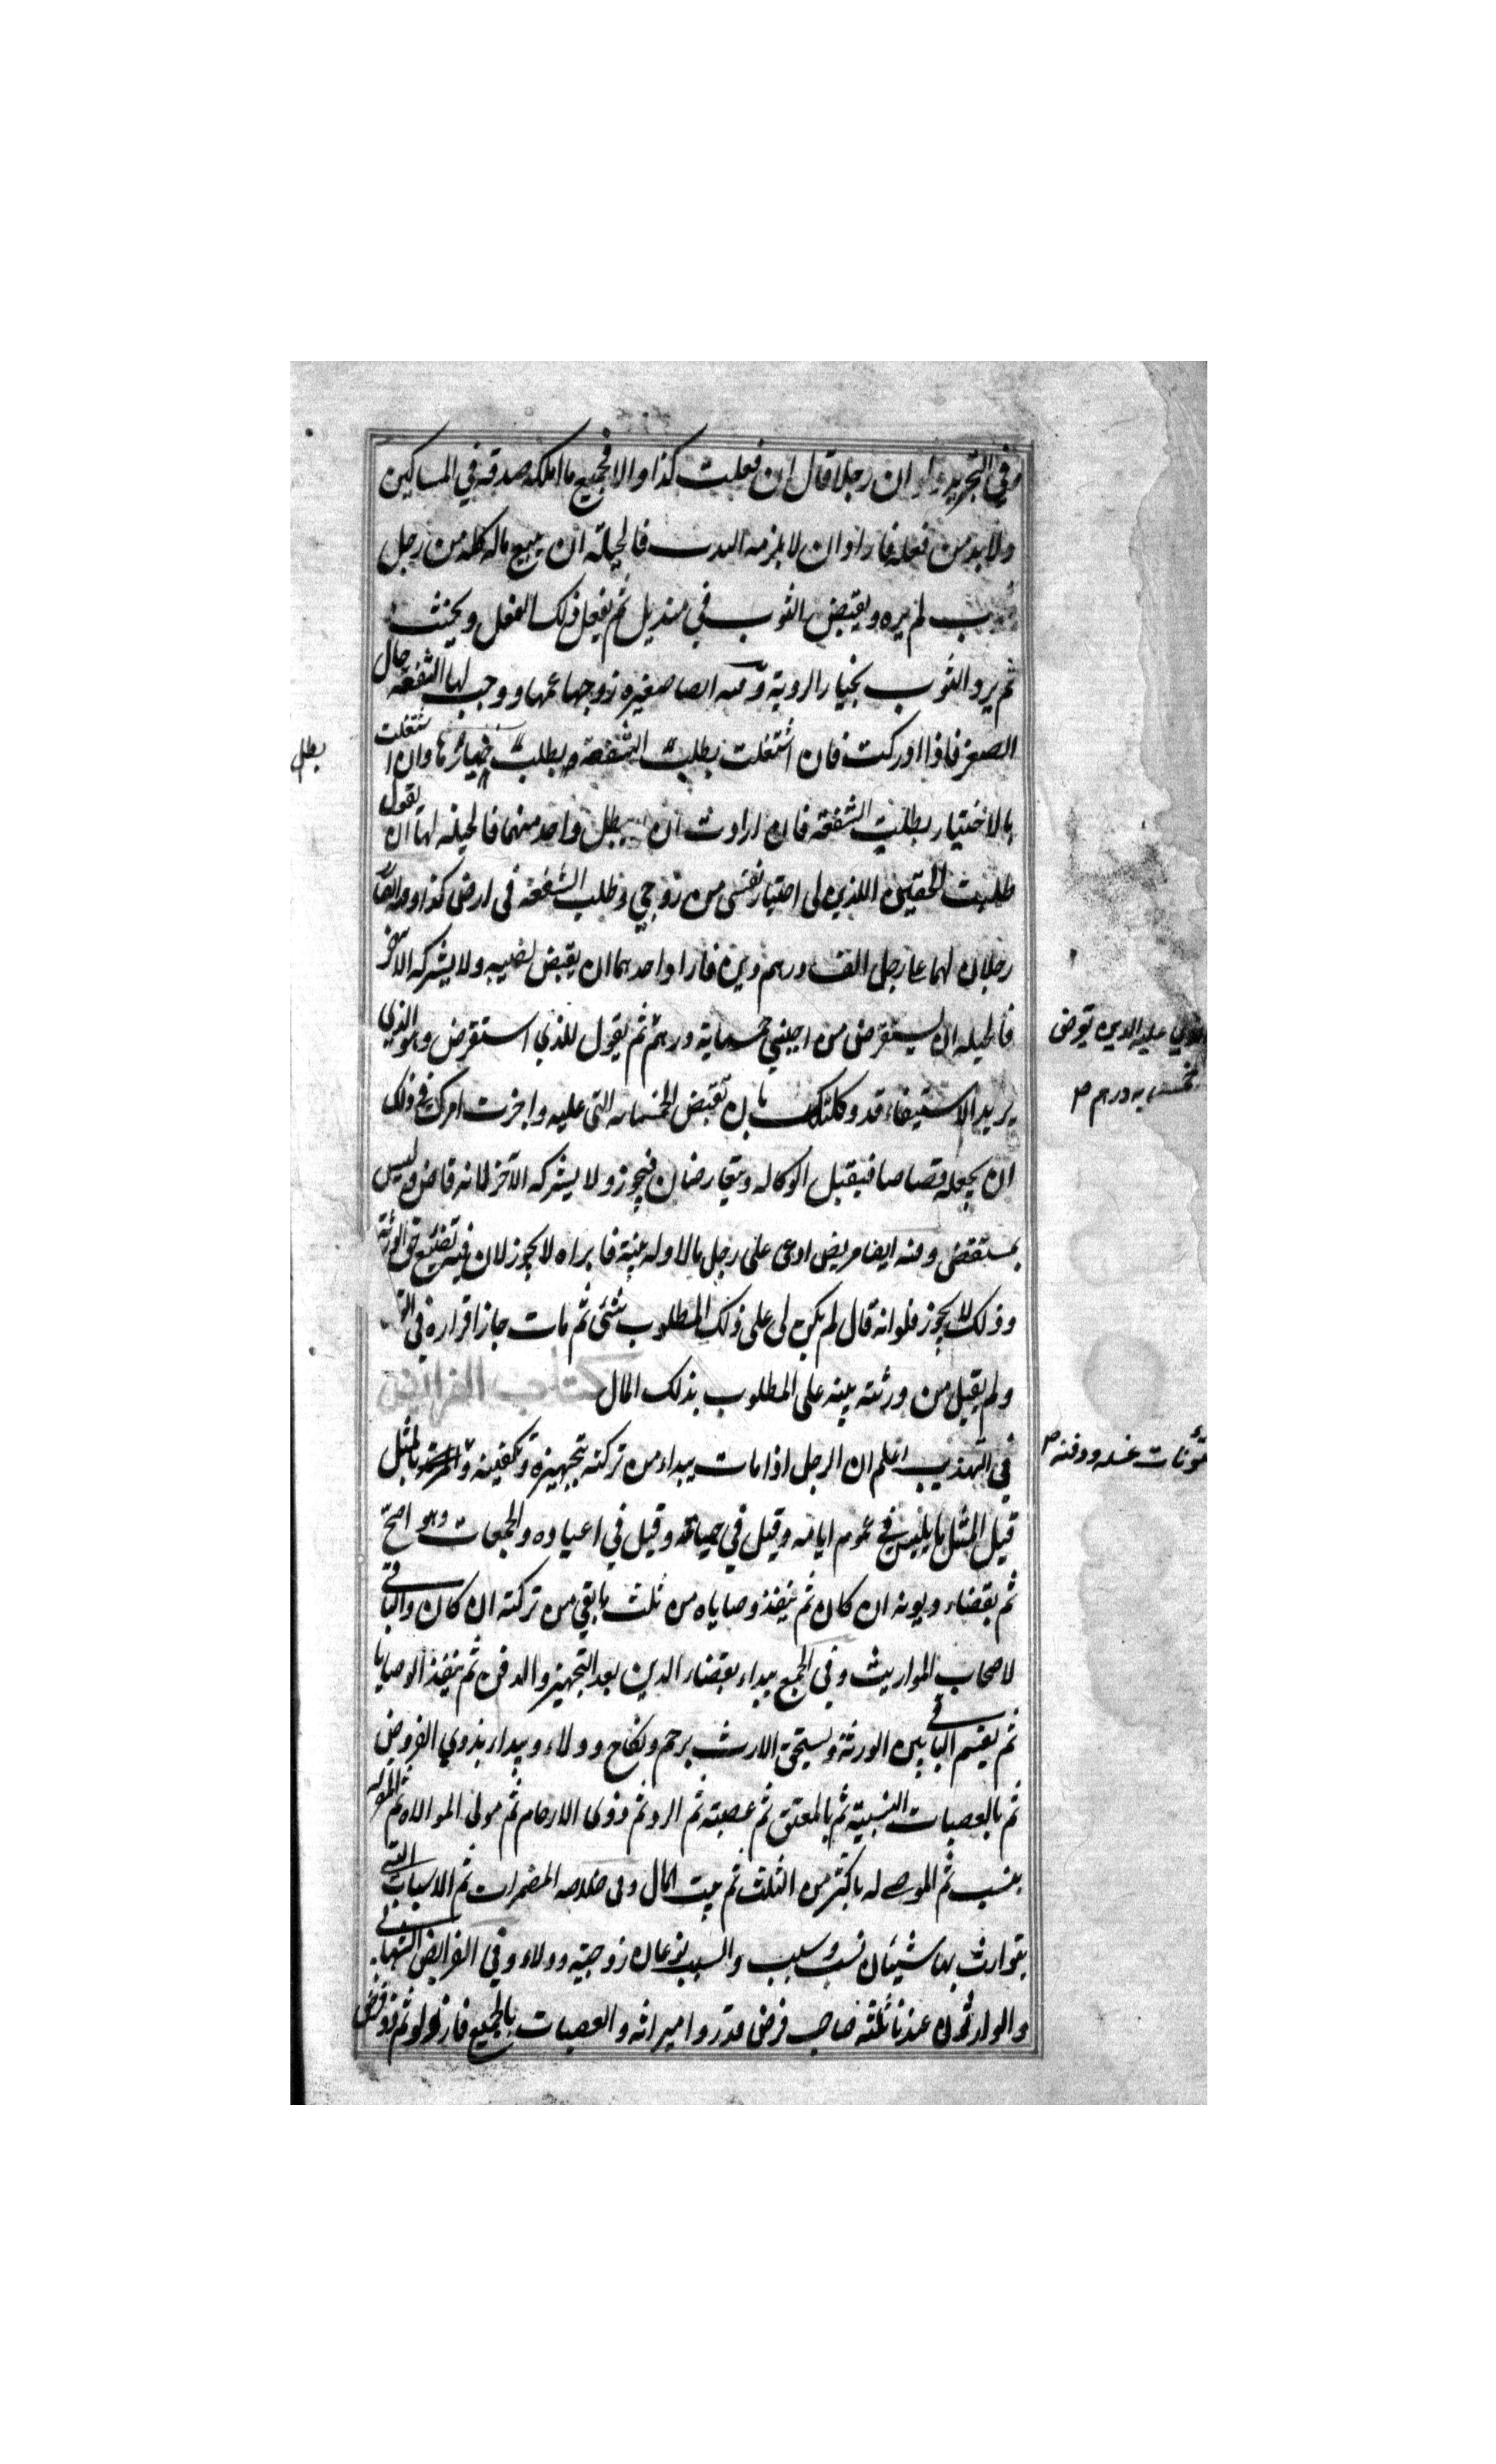 وفي التجريد ولو ان رجلا قال ان فعلت كذا والا فجميع ما املكه صدقة في المساكين
ولا بد من فعله فاراد ان لا يلزمه فالحيلة ان يبيع ماله كله من رجل
لم يره ويقبض الثوب في منديل ثم يفعل ذلك الفعل ويحنث
ثم يرد الثوب بخيار الروية ومنه ايضا صغيرة زوجها عمها ووجب لها الشفعة حال
الصغر فاذا ادركت فان اشتغلت بطلب الشفعة بطلت خيارها وان اشتغلت
بطل
بالاختيار بطلت الشفعة فان ارادت ان يبطل واحد منهما فالحيلة لها ان يقول
طلبت الحقين اللذين لى اختيار نفسى من زوجي وطلب الشفعة فى ارض كذا
رجلان لهما على رجل الف درهم دين فاراد احدهما ان يقبض نصيبه ولا يشركه الاخر
فالحيلة ان يستقرض من اجنبي خمسماية درهم ثم يقول للذي استقرض وهو الذي
عليه الدين
درهم ص
يريد الاستيفاء قد وكلتك بان تقبض الخمسمايه التى عليه واجزت امرك في ذلك
ان يجعله قصاصا فيقبل الوكاله ويتقارضان فيجوز ولا يشركه الآخر لانه قاض وليس
بمستقض ومنه ايضا مريض ادعى على رجل مالا وله بينة فابراه لا يجوز لان فيه تضييع حق الورثة
وذلك لا يجوز فلو انه قال لم يكن لى على ذلك المطلوب شئ ثم مات جاز اقراره في
ولم يقبل من ورثته بينه على المطلوب بذلك المال كتاب الفرائض
في التهذيب اعلم ان الرجل اذا مات يبداء من تركته بتجهيزه وتكفينه بالمثل
مؤنات غسله ودفنه ص
قيل المثل ما يلبس في عموم ايامه وقيل في حياته وقيل في اعياده والجمعات وهو اصح
ثم بقضاء ديونه ان كان ثم ينفذ وصاياه من ثلث ما بقي من تركته ان كان والباقي
لاصحاب المواريث وفي الجمع يبداء بقضاء الدين بعد التجهيز والدفن ثم ينفذ الوصايا
ثم يقسم الباقي بين الورثة ويستحق الارث برحم ونكاح وولاء ويبداء بذوي الفروض
ثم بالعصبات النسبية ثم بالمعتق ثم عصبته ثم الرد ثم ذوى الارحام ثم مولى الموالاة ثم المقر له
بنسب ثم الموصى له باكثر من الثلث ثم بيت المال وفى خلاصه المضمرات ثم الاسباب التي
يتوارث بها شيئان نسب وسبب والسبب نوعان زوجية وولاء وفي الفرايض البهائي
والوارثون عندنا ثلثة صاحب فرض قدروا ميراثه والعصبات بالجميع فازوا